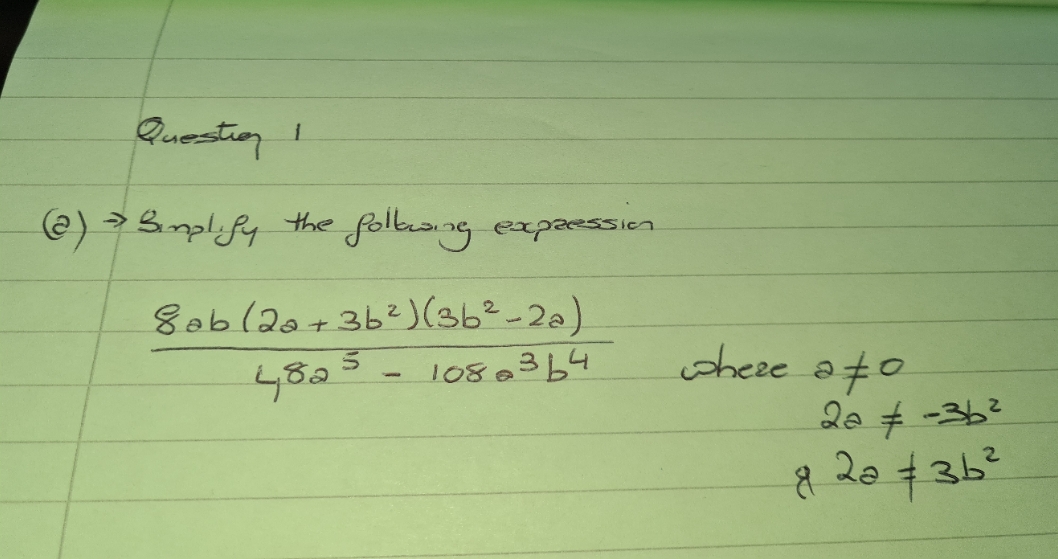 Question 1
(a) → Simplify the following expression
8ab(2a + 3b²)(3b² - 2a)
48a⁵ - 108a³b⁴ where a ≠ 0
2a ≠ -3b²
& 2a ≠ 3b²